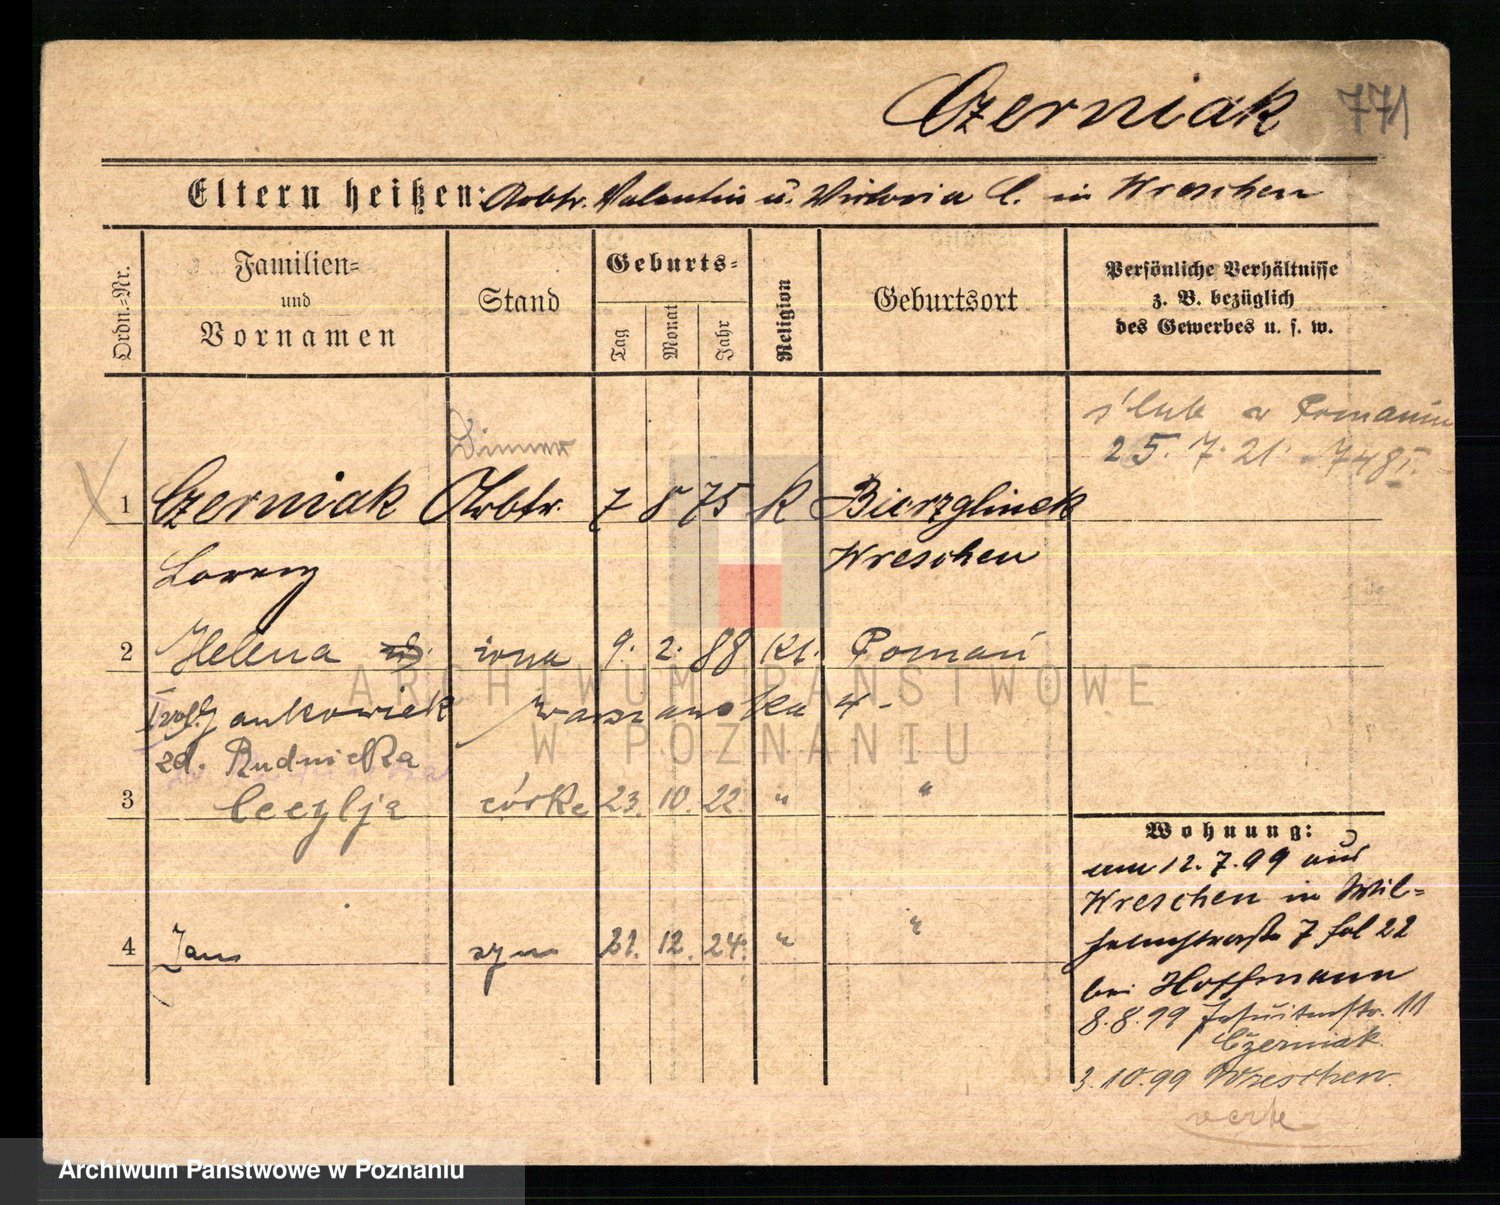 Czerniak 771
Eltern heißen: Arbtr. Valentin u. Victoria C. in Wreschen
Ordn.-Nr.
Familien-
und
Vornamen
Stand
Geburts-
Tag
Monat
Jahr
Religion
Geburtsort
Persönliche Verhältnisse
z. B. bezüglich
des Gewerbes u. s. w.
ślub w Poznaniu
25. 7. 21. 748I.
1 Czerniak Arbtr. 7 8 75 K Bierzglinek
Lorenz Wreschen
2 Helena żona 9. 2. 88 kt. Poznań
Jankowiak Warszawska 4-
zd. Rudnicka
3 Cecylja córka 23. 10. 22. " "
4 Jan syn 21. 12. 24. " "
Wohnung:
am 12. 7. 99 aus
Wreschen in Wil-
helmstraße 7 fol 22
bei Hoffmann
8. 8. 99 Jesuitenstr. 11
Czerniak.
3. 10. 99 Wreschen.
verte
ARCHIWUM PAŃSTWOWE
W POZNANIU
Archiwum Państwowe w Poznaniu